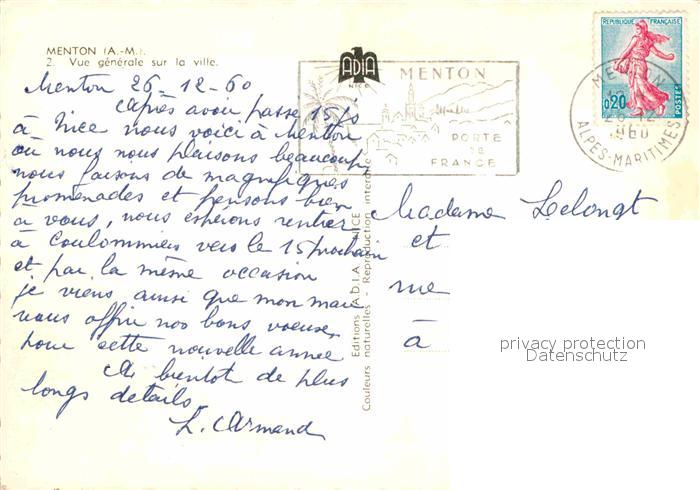 MENTON (A.-M.).
2. Vue générale sur la ville.
Menton 26-12-60
Après avoir passé 15 js
à Nice nous voici à Menton
où nous nous plaisons beaucoup
nous faisons de magnifiques
promenades et pensons bien
à vous, nous espérons rentrer
à Coulommiers vers le 15 prochain
et par la même occasion
je viens ainsi que mon mari
vous offrir nos bons voeux
pour cette nouvelle année
A bientot de plus
longs détails.
L. Armand
ADIA
NICE
MENTON
PORTE
DE
FRANCE
REPUBLIQUE FRANÇAISE
0,20
POSTES
MENTON
26-12
1960
ALPES-MARITIMES
Editions A.D.I.A. NICE
Couleurs naturelles - Reproduction interdite
Madame Lelongt
et
rue
à
privacy protection
Datenschutz